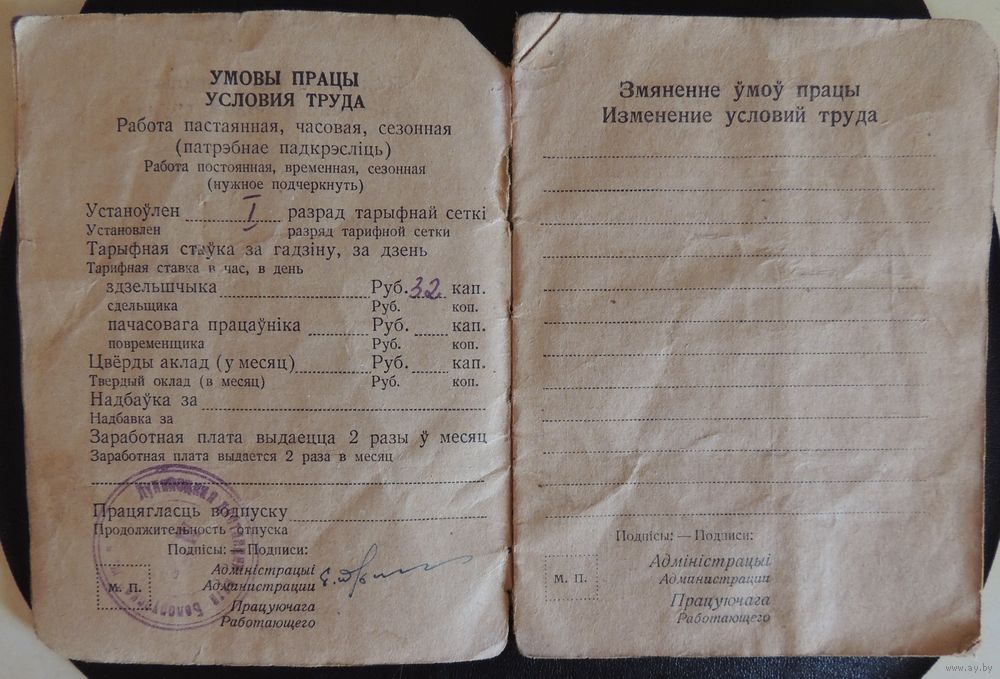 УМОВЫ ПРАЦЫ
УСЛОВИЯ ТРУДА
Работа пастаянная, часовая, сезонная
(патрэбнае падкрэсліць)
Работа постоянная, временная, сезонная
(нужное подчеркнуть)
Устаноўлен I разрад тарыфнай сеткі
Установлен разряд тарифной сетки
Тарыфная стаўка за гадзіну, за дзень
Тарифная ставка в час, в день
здзельшчыка Руб. 32 кап.
сдельщика Руб. коп.
пачасовага працаўніка Руб. кап.
повременщика Руб. коп.
Цвёрды аклад (у месяц) Руб. кап.
Твердый оклад (в месяц) Руб. коп.
Надбаўка за
Надбавка за
Заработная плата выдаецца 2 разы ў месяц
Заработная плата выдается 2 раза в месяц
Працягласць водпуску
Продолжительность отпуска
Подпісы: — Подписи:
Адміністрацыі
М. П. Администрации
Працуючага
Работающего
Змяненне ўмоў працы
Изменение условий труда
Подпісы: — Подписи:
Адміністрацыі
М. П. Администрации
Працуючага
Работающего
www.ay.by